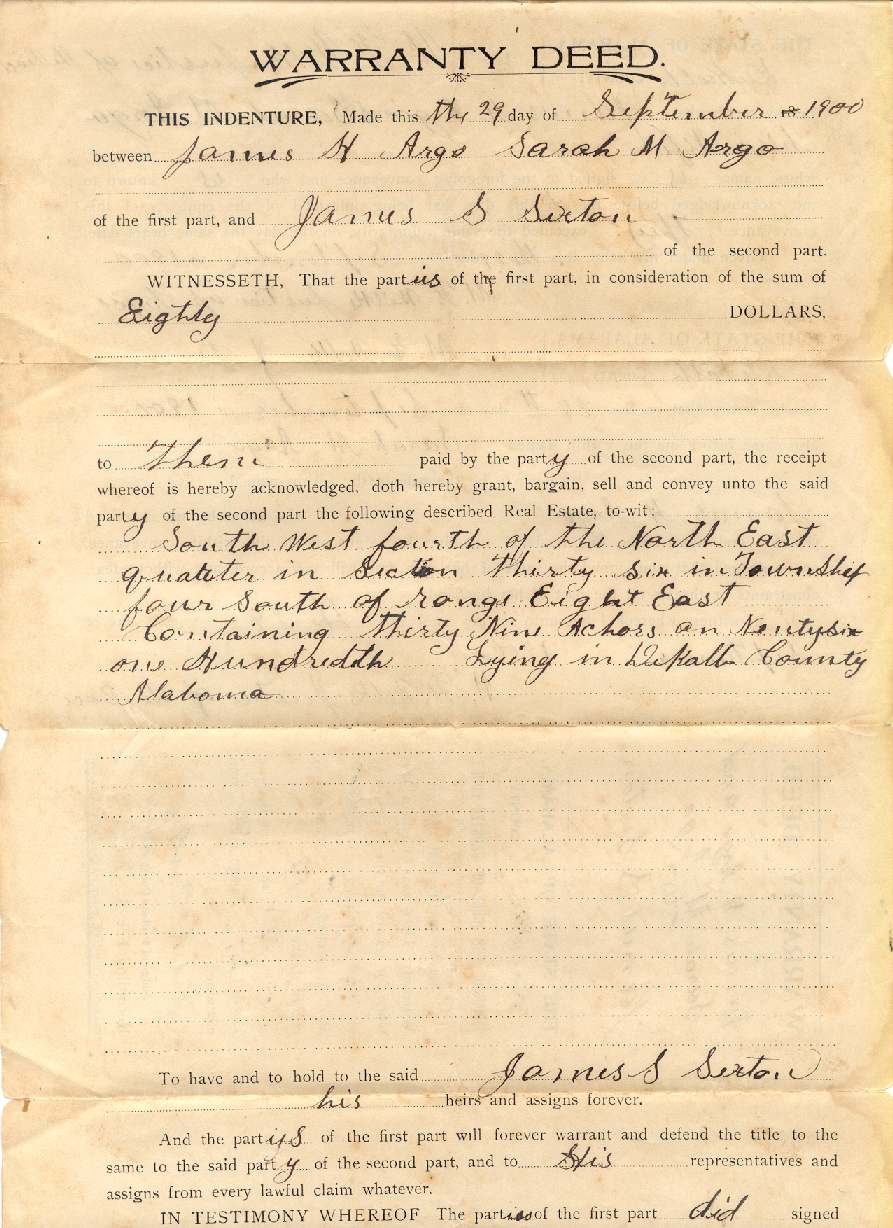 WARRANTY DEED.
THIS INDENTURE, Made this the 29 day of September 18 1900
between James H Argo Sarah M Argo
of the first part, and James S Sexton
of the second part.
WITNESSETH, That the parties of the first part, in consideration of the sum of
Eighty DOLLARS,
to them paid by the party of the second part, the receipt
whereof is hereby acknowledged, doth hereby grant, bargain, sell and convey unto the said
party of the second part the following described Real Estate, to-wit:
South West fourth of the North East
quateter in Section thirty six in Township
four South of range Eight East
Containing thirty Nine Achors an Nentysix
one Hundredth Lying in DeKalb County
Alabama
To have and to hold to the said James S Sexton
his heirs and assigns forever.
And the partys of the first part will forever warrant and defend the title to the
same to the said party of the second part, and to His representatives and
assigns from every lawful claim whatever.
IN TESTIMONY WHEREOF The parties of the first part did signed